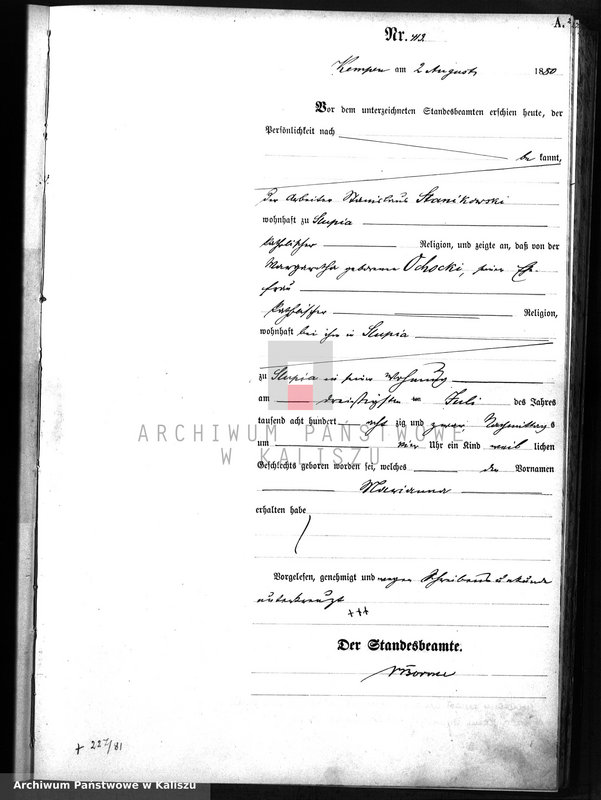 A.
Nr. 412
Kempen am 2 August 1880
Vor dem unterzeichneten Standesbeamten erschien heute, der
Persönlichkeit nach
be kannt,
der Arbeiter Stanislaus Stanikowski
wohnhaft zu Slupia
katholischer Religion, und zeigte an, daß von der
Margaretha geborene Ochocki, seiner Ehe-
frau
katholischer Religion,
wohnhaft bei ihm in Slupia
zu Slupia in seiner Wohnung
am dreißigsten Juli des Jahres
tausend acht hundert acht zig und zwar Nachmittags
ARCHIWUM PAŃSTWOWE
um vier Uhr ein Kind weib lichen
W KALISZU
Geschlechts geboren worden sei, welches den Vornamen
Marianna
erhalten habe
Vorgelesen, genehmigt und wegen Schreibensunkunde
unterkreuzt
+++
Der Standesbeamte.
+ 227/81
Archiwum Państwowe w Kaliszu